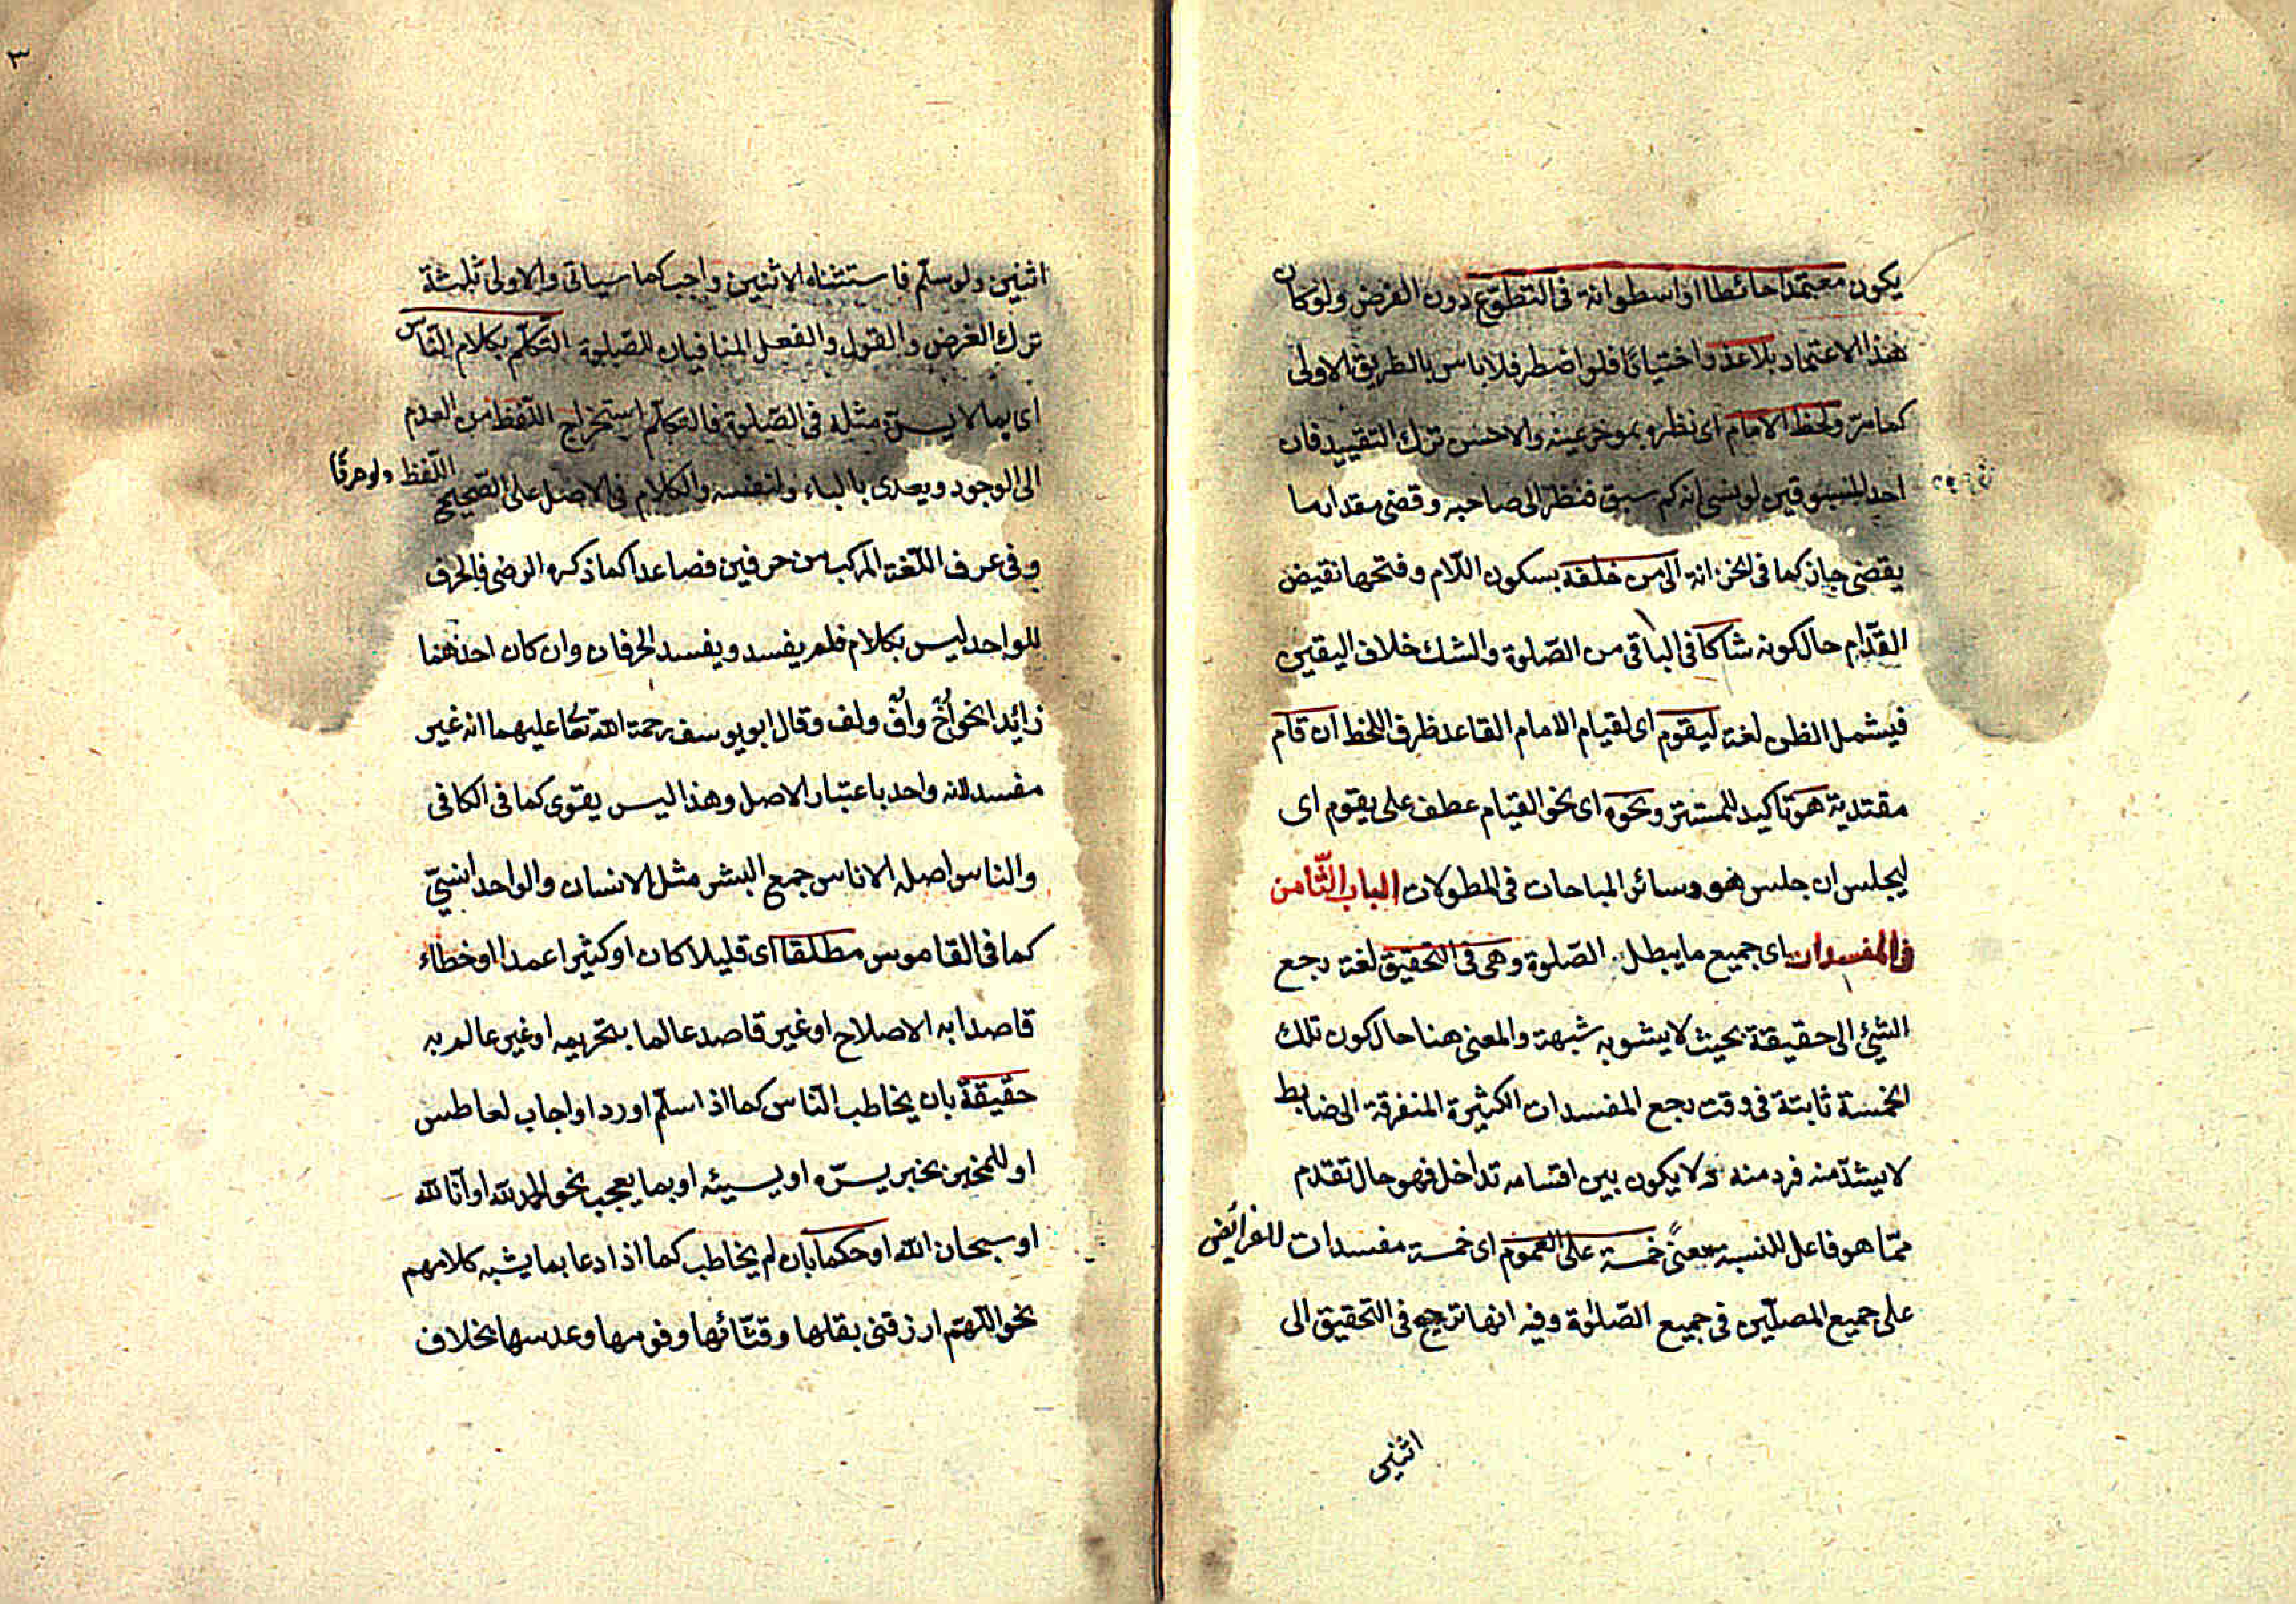 يكون معتمدا حائطا او اسطوانة فى التطوّع دون الفرض ولو كان
هذا الاعتماد بلا عذر واختيارًا فلو اضطر فلا باس بالطريق الاولى
كما مرّ ولحظ الامام اى نظره بموخر عينه والاحسن ترك التقييد فان
احد المسبوقين لو نسى انه كم سبق فنظر الى صاحبه وقضى مقدار ما
يقضى جاز كما فى الخزانة الى من خلفه بسكون اللّام وفتحها نقيض
القدّام حال كونه شاكا فى الباقى من الصّلوة والشك خلاف اليقين
فيشمل الظن لغة ليقوم اى لقيام الامام القاعد ظرف اللحظ ان قام
مقتديه هو تاكيد للمستتر ونحوه اى نحو القيام عطف على يقوم اى
ليجلس ان جلس هو وسائر المباحات فى المطولات الباب الثّامن
فى المفسدات اى جميع ما يبطل الصّلوة وهى فى التحقيق لغة رجع
الشئ الى حقيقة بحيث لا يشوبه شبهة والمعنى هنا حال كون تلك
الخمسة ثابتة فى وقت رجع المفسدات الكثيرة المتفرقة الى ضابط
لا يشذّ منه فرد منه ولا يكون بين اقسامه تداخل فهو حال تقدم
ممّا هو فاعل للنسبة معنىً خمسة على العموم اى خمسة مفسدات للفرائض
على جميع المصلّين فى جميع الصّلوة وفيه انها ترجع فى التحقيق الى
اثنين
٣
اثنين ولو سلّم فاستثناه الاثنين واجب كما سياتى والاولى ثلثة
ترك الفرض والقول والفعل المنافيان للصّلوة التّكلّم بكلام النّاس
اى بما لا يسرّه مثله فى الصّلوة فالتكلّم استخراج اللّفظ من العدم
الى الوجود ويعدى بالباء ولنفسه والكلام فى الاصل على الصّحيح اللّفظ ولو حرفًا
وفى عرف اللّغة المركب من حرفين فصاعدا كما ذكره الرضى فالحرف
للواحد ليس بكلام فلم يفسد ويفسد الحرفان وان كان احدهما
زائدا نحو اخّ وافّ ولف وقال ابو يوسف رحمة اللّه تعا عليهما انه غير
مفسد لانه واحد باعتبار الاصل وهذا ليس يقوى كما فى الكافى
والناس اصله الاناس جمع البشر مثل الانسان والواحد انسىّ
كما فى القاموس مطلقا اى قليلا كان او كثيرا عمدا او خطاء
قاصدا به الاصلاح او غير قاصد عالما بتحريمه او غير عالم به
حقيقةً بان يخاطب النّاس كما اذا سلّم او رد او اجاب لعاطس
او للمخبر بخبر يسرّه او يسيئه او بما يعجب نحو الحمد للّه او انّا للّه
او سبحان اللّه او حكما بان لم يخاطب كما اذا دعا بما يشبه كلامهم
نحو اللّهمّ ارزقنى بقلها وقثّائها وفومها وعدسها بخلاف